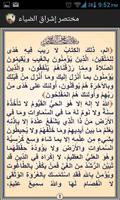 8:52 PM
مختصر إشراق الضياء
بسم الله الرحمن الرحيم
﴿الم، ذَلِكَ الْكِتَابُ لاَ رَيْبَ فِيهِ هُدًى
لِّلْمُتَّقِينَ، الَّذِينَ يُؤْمِنُونَ بِالْغَيْبِ وَيُقِيمُونَ
الصَّلاةَ وَمِمَّا رَزَقْنَاهُمْ يُنفِقُونَ، وَالَّذِينَ
يُؤْمِنُونَ بِمَا أُنزِلَ إِلَيْكَ وَمَا أُنزِلَ مِن
قَبْلِكَ وَبِالآخِرَةِ هُمْ يُوقِنُونَ، أُوْلَئِكَ عَلَى
هُدًى مِّن رَّبِّهِمْ وَأُوْلَئِكَ هُمُ الْمُفْلِحُونَ﴾
﴿اللَّهُ لاَ إِلَهَ إِلاَّ هُوَ الْحَيُّ الْقَيُّومُ لاَ تَأْخُذُهُ
سِنَةٌ وَلاَ نَوْمٌ لَّهُ مَا فِي السَّمَاوَاتِ وَمَا فِي
الأَرْضِ مَن ذَا الَّذِي يَشْفَعُ عِنْدَهُ إِلاَّ بِإِذْنِهِ
يَعْلَمُ مَا بَيْنَ أَيْدِيهِمْ وَمَا خَلْفَهُمْ وَلاَ
يُحِيطُونَ بِشَيْءٍ مِّنْ عِلْمِهِ إِلاَّ بِمَا شَاء وَسِعَ
كُرْسِيُّهُ السَّمَاوَاتِ وَالأَرْضَ وَلاَ يَؤُودُهُ حِفْظُهُمَا
وَهُوَ الْعَلِيُّ الْعَظِيمُ، لاَ إِكْرَاهَ فِي الدِّينِ قَد
تَّبَيَّنَ الرُّشْدُ مِنَ الْغَيِّ فَمَنْ يَكْفُرْ بِالطَّاغُوتِ
وَيُؤْمِن بِاللَّهِ فَقَدِ اسْتَمْسَكَ بِالْعُرْوَةِ الْوُثْقَىَ لاَ
انفِصَامَ لَهَا وَاللَّهُ سَمِيعٌ عَلِيمٌ،